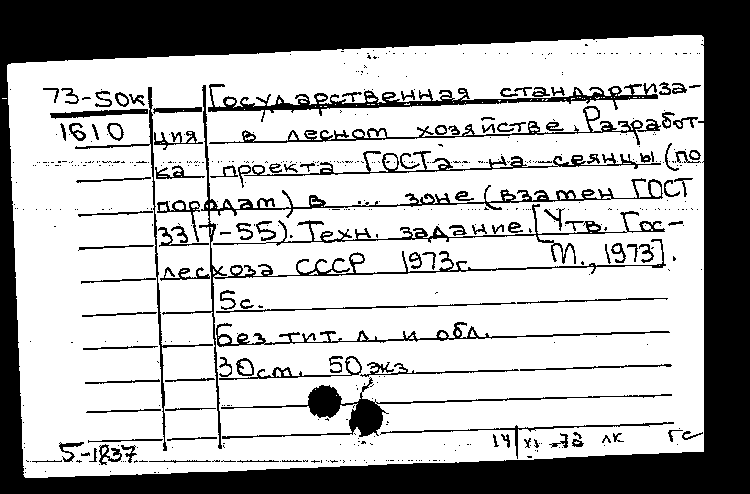 73-50к Государственная стандартиза-
1610 ция в лесном хозяйстве. Разработ-
ка проекта ГОСТа на сеянцы (по
породам) в ... зоне (взамен ГОСТ
3317-55). Техн. задание. [Утв. Гос-
лесхоза СССР 1973г. М., 1973].
5с.
без тит. л. и обл.
30см. 50экз.
5-1837 14/XI-73 лк ГС